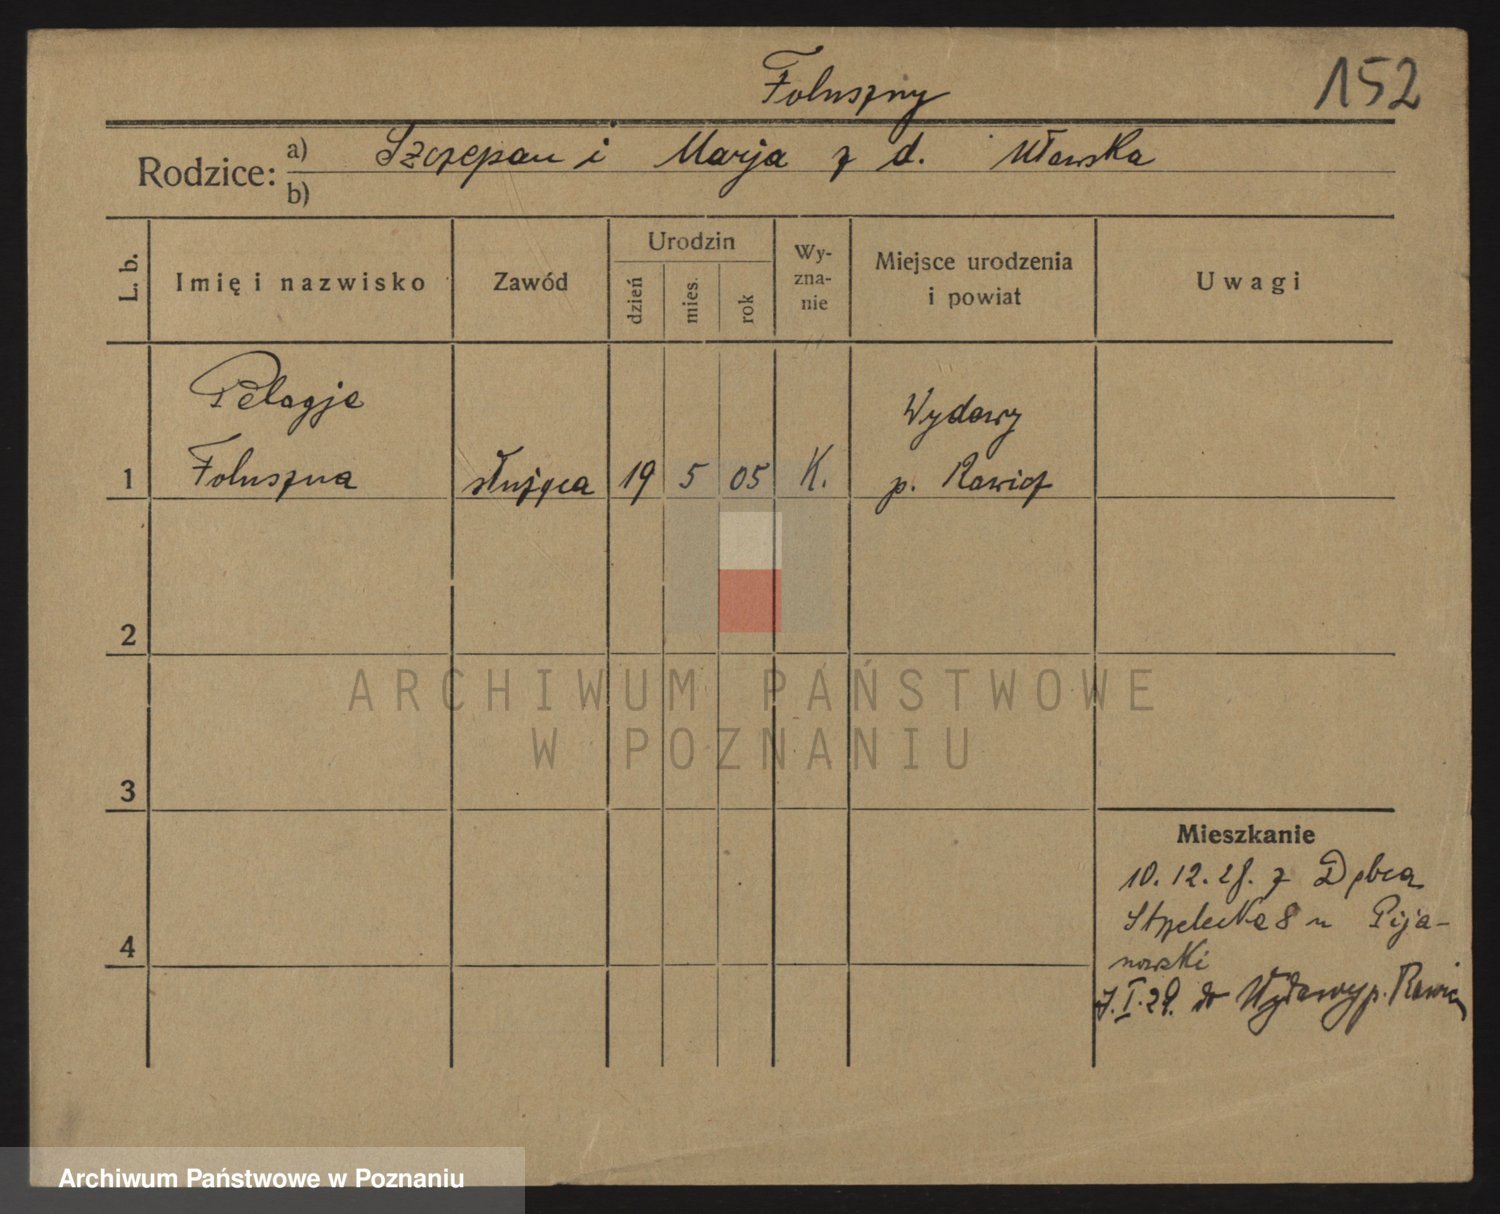 Foluszny
152
Rodzice: a) Szczepan i Marja z d.
b)
L. b.
Imię i nazwisko
Zawód
Urodzin
dzień
mies.
rok
Wy-
zna-
nie
Miejsce urodzenia
i powiat
Uwagi
Pelagje
Foluszna
1
służąca
19
5
05
K.
Wydawy
p. Rawicz
2
3
4
ARCHIWUM PAŃSTWOWE
W POZNANIU
Mieszkanie
10. 12. 28. z Dębca
Strzelecka 8 u Pija-
nowski
I. 29. do Wydawy p. Rawicz
Archiwum Państwowe w Poznaniu